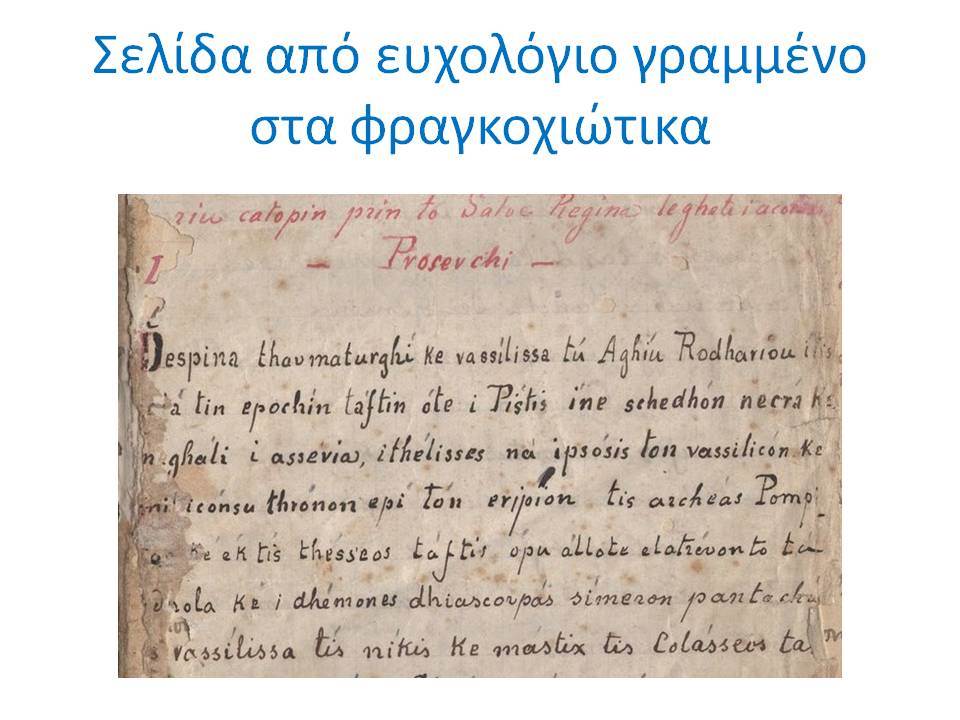 Σελίδα από ευχολόγιο γραμμένο
στα φραγκοχιώτικα
catopin prin to Salve Regina leghete
— Prosevchi —
Despina thavmaturghi ke vassilissa tú Aghiu Rodhariou
tin epochin táftin óte i Pistis ine schedhón necrá ke
i assévia, ithélisses ná ipsósis ton vassilicón ke
thrónon epi tón eripion tis archéas Pomp
ke ék tis thésseos táftis ópu állote elatrévonto ta
ke i dhémones dhiascorpás simeron pantachú
vassilissa tis nikis ke mastix tis Colásseos ta